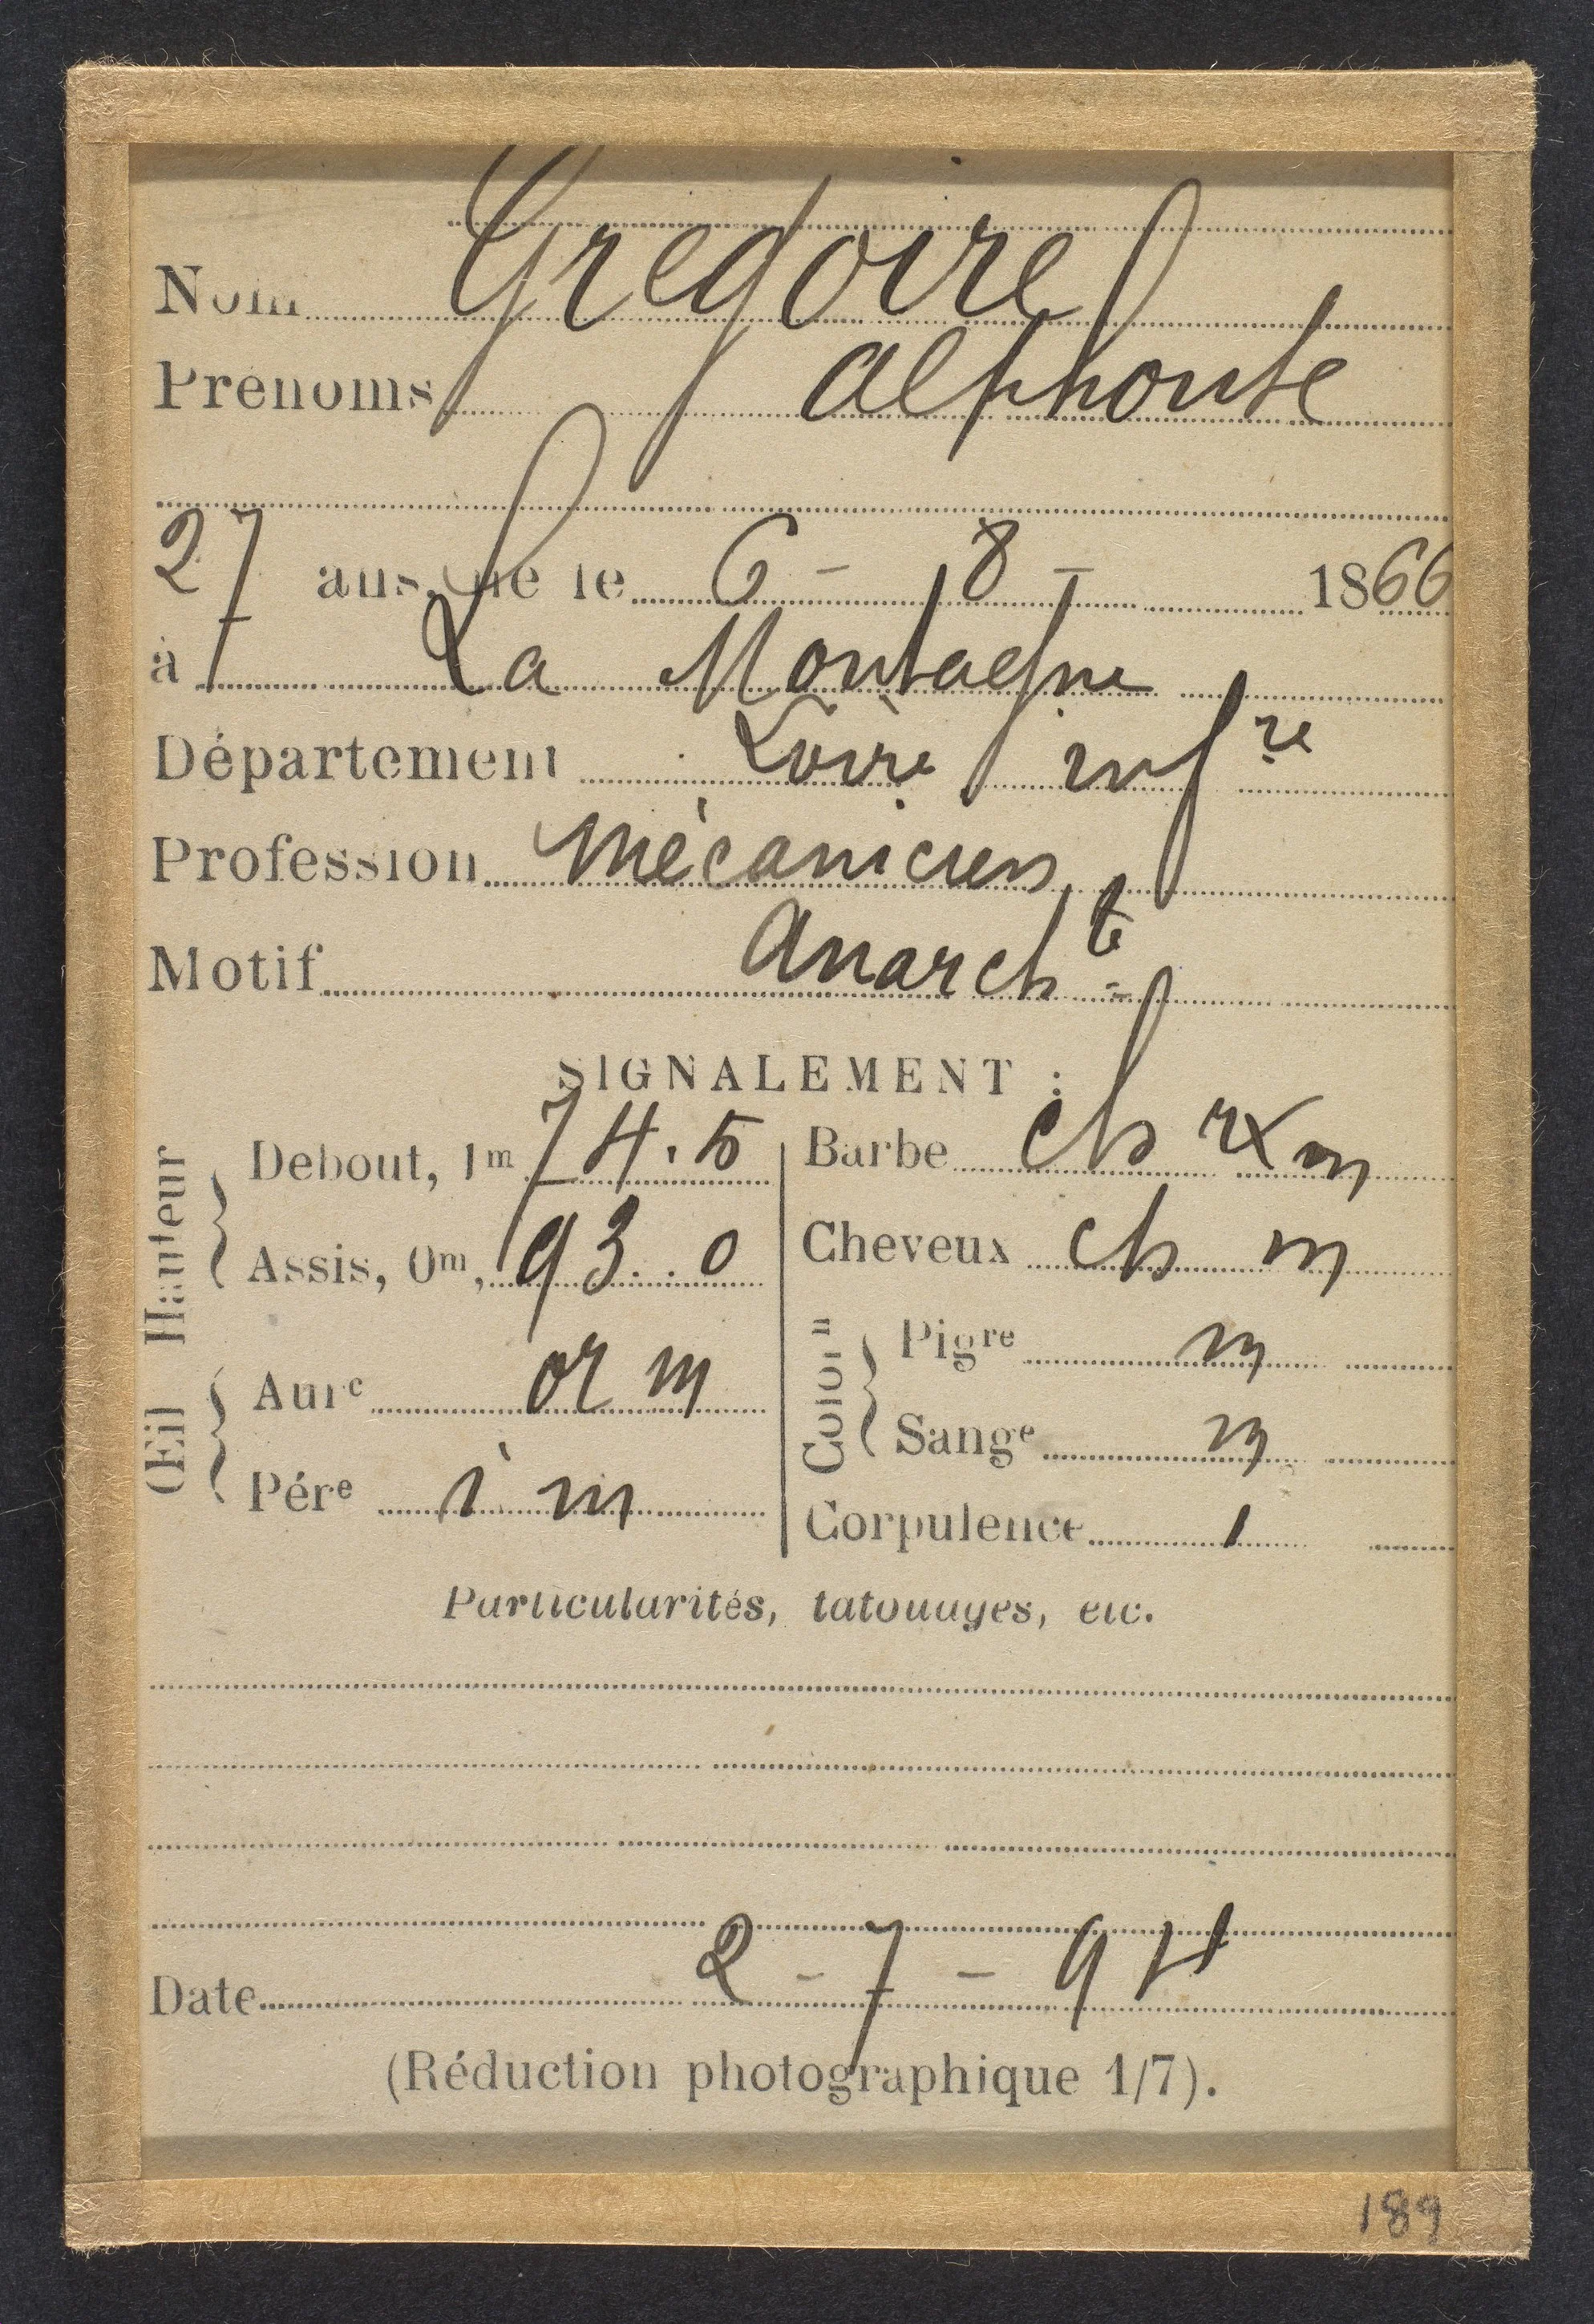 Nom Gregoire
Prénoms alphonse
27 ans, né le 6 - 8 - 1866
à La Montagne
Département Loire infre
Profession mécanicien
Motif anarchte
SIGNALEMENT :
Hauteur
Debout, 1m 74.5
Assis, 0m, 93.0
Œil
Aure or m
Pére i m
Barbe ch rx m
Cheveux ch m
Coloron
Pigre m
Sange m
Corpulence 1
Particularités, tatouages, etc.
Date 2 - 7 - 94
(Réduction photographique 1/7).
189